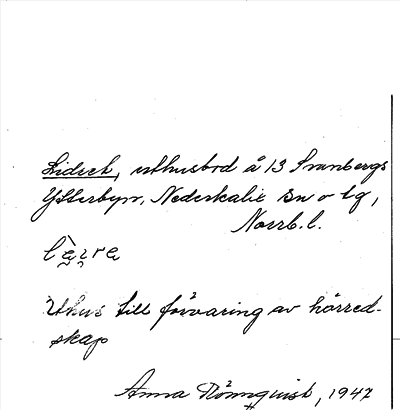 Lidret, uthusbod å 13 Svanbergs
Ytterbyn, Nederkalix sn o lg,
Norrb. l.
Uthus till förvaring av körred-
skap
Anna Rönnquist, 1947